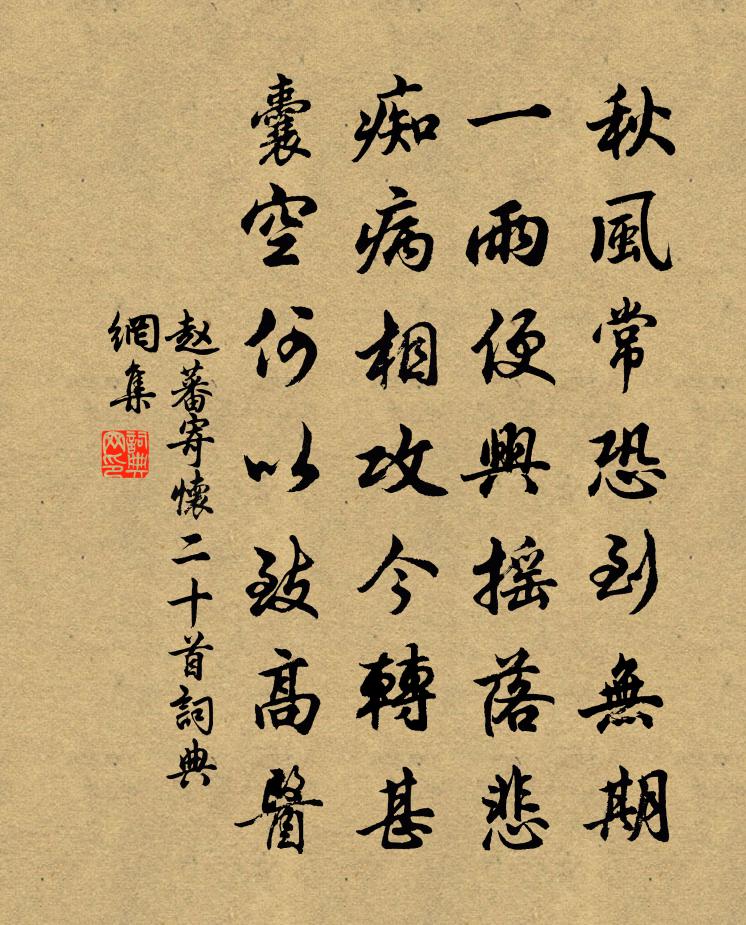 秋風常恐到無期
一雨便興搖落悲
痴病相攻今轉甚
囊空何以致高醫
赵蕃寄懷二十首詞典
網集
詞典
网印